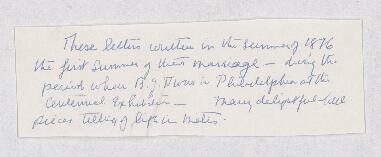 These letters written in the Summer of 1876
the first Summer of their marriage – during the
period when B.J. was in Philadelphia at the
Centennial Exhibition – Many delightful little
pieces telling of life in